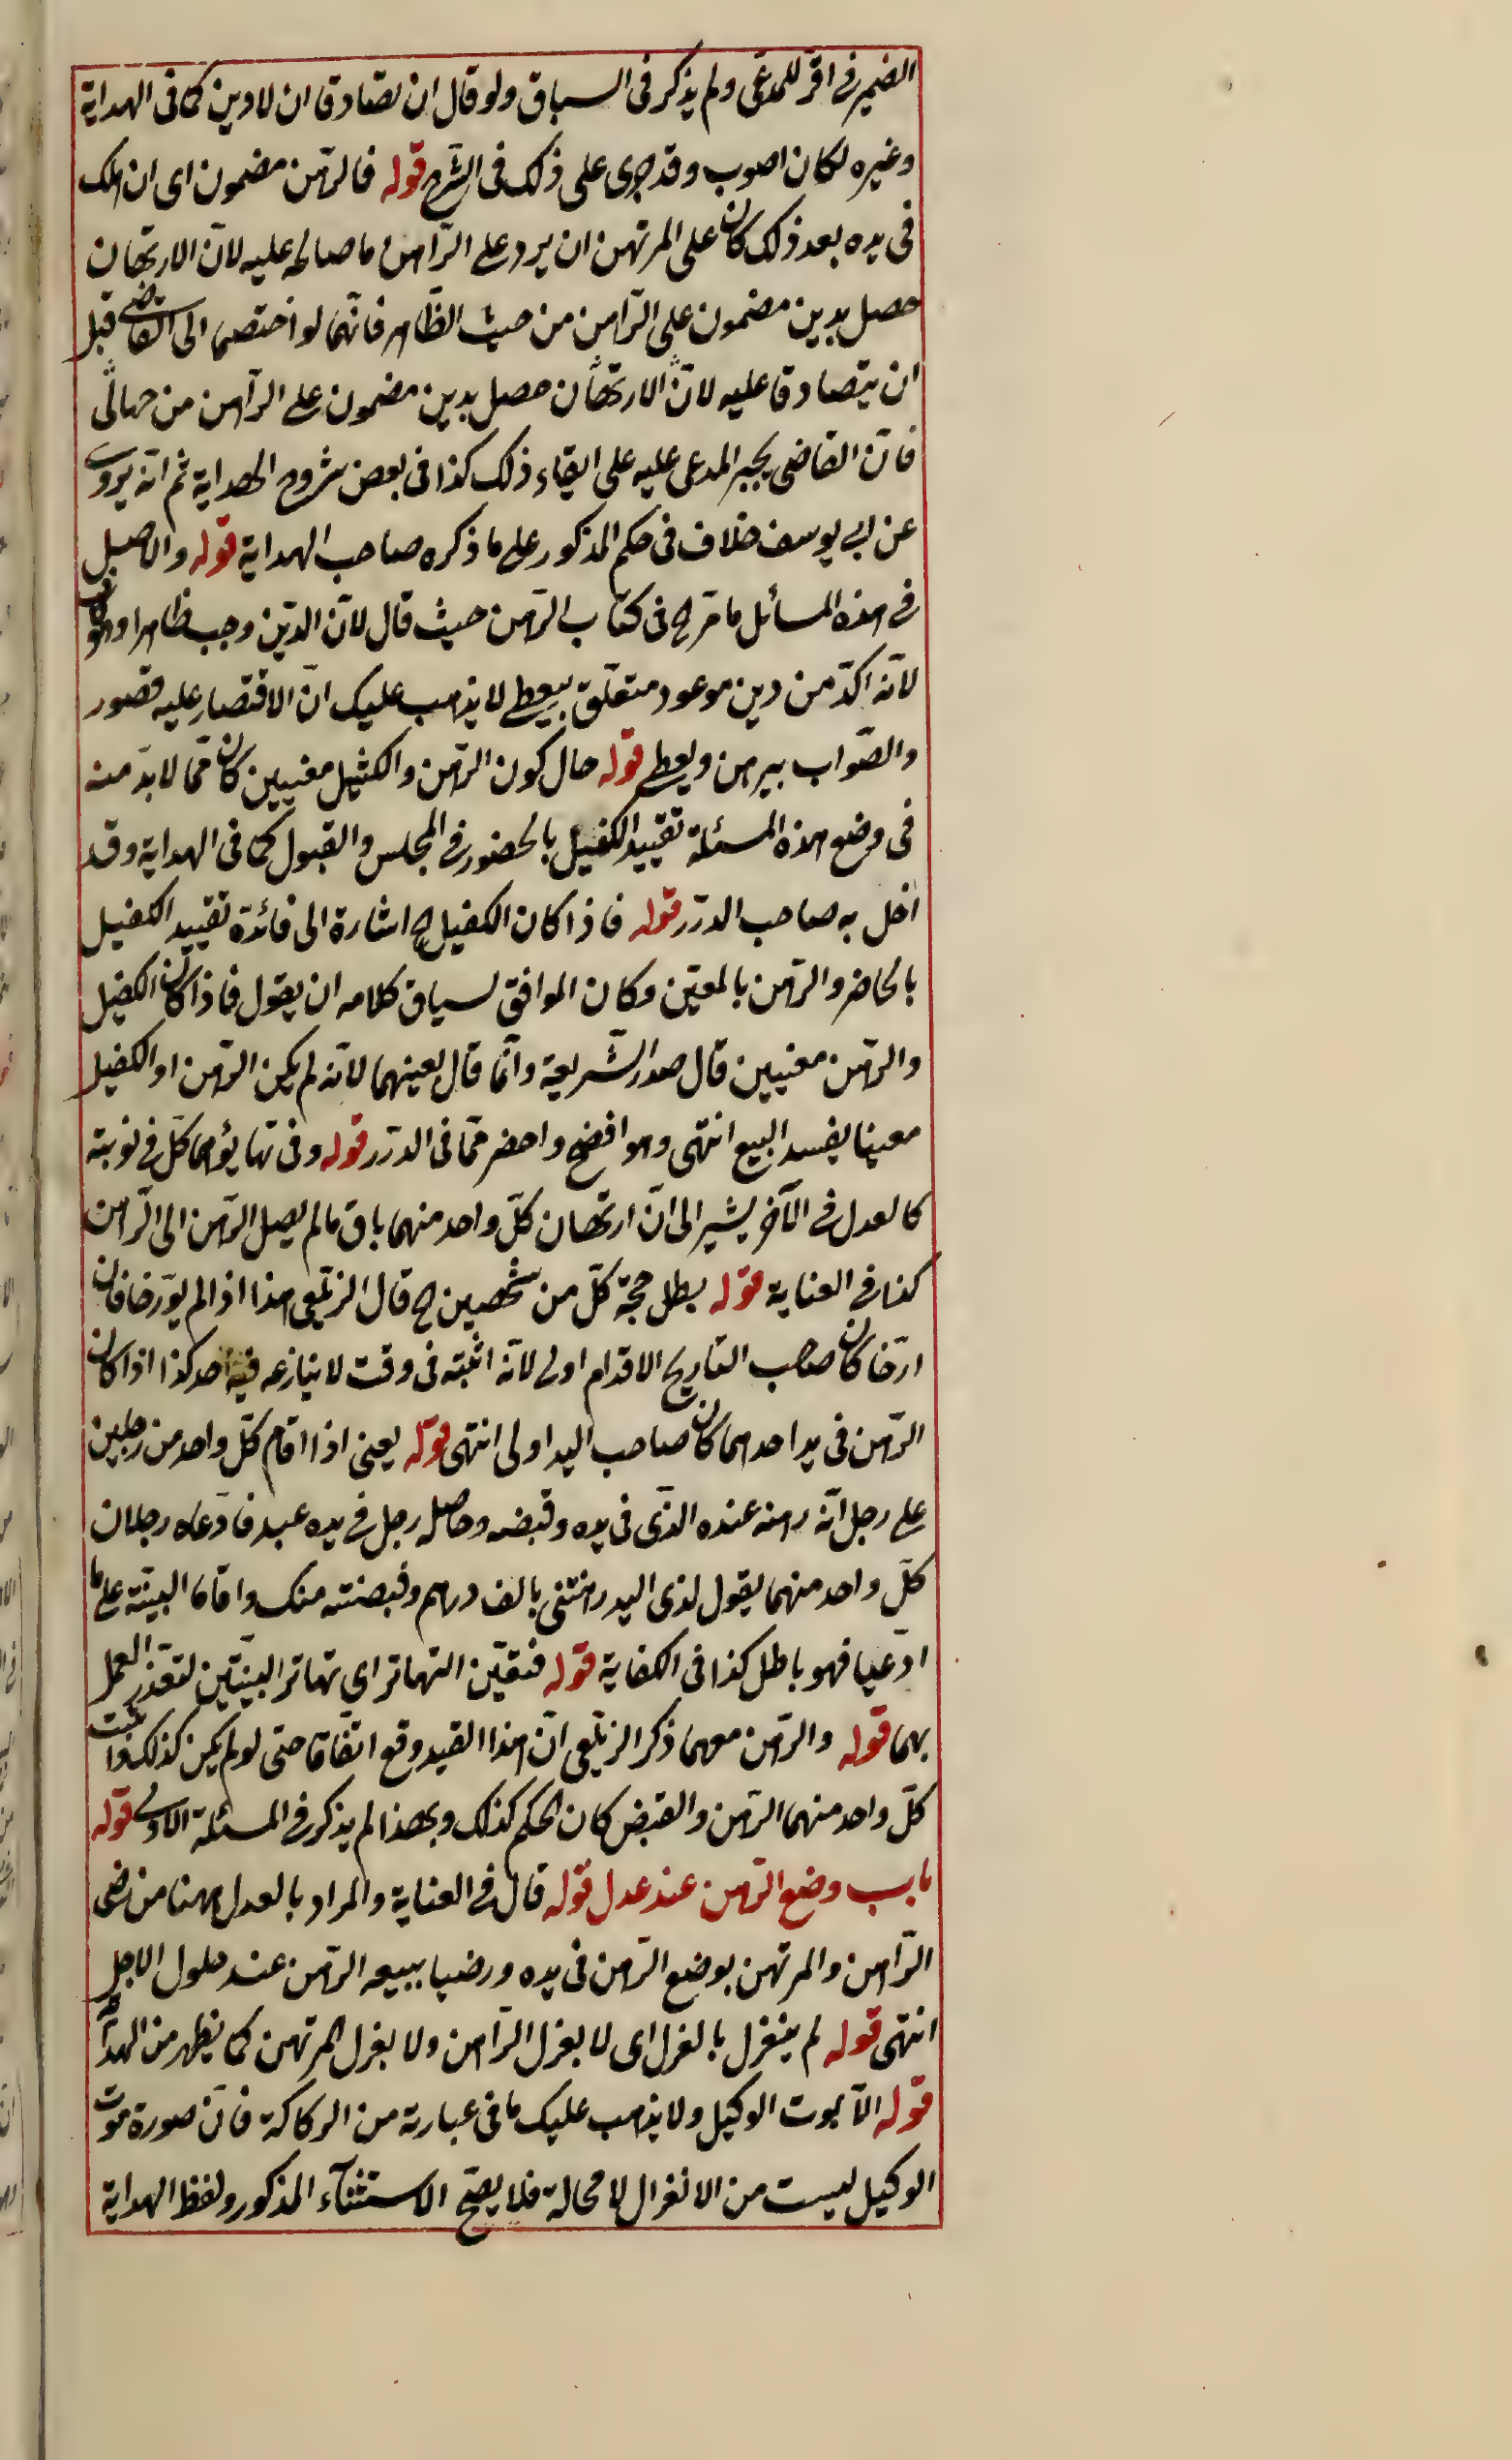 الضمير في اقر للمدعى ولم يذكر فى السباق ولو قال ان تصادقا ان لا دين كما فى الهداية
وغيره لكان اصوب وقد جرى على ذلك فى الشرح قوله فالرهن مضمون اى ان هلك
فى يده بعد ذلك كان على المرتهن ان يرد على الراهن ما صالحه عليه لان الارتهان
حصل بدين مضمون على الراهن من حيث الظاهر فانهما لو اختصما الى القاضى قبل
ان يتصادقا عليه لان الارتهان حصل بدين مضمون على الراهن من
فان القاضى يجبر المدعى عليه على ايفاء ذلك كذا فى بعض شروح الهداية ثم انه يروى
عن ابى يوسف خلاف فى حكم المذكور على ما ذكره صاحب الهداية قوله والاصل
فى هذه المسائل ما مر فى كتاب الرهن حيث قال لان الدين وجب ظاهرا وهو
لانه آكد من دين موعود متعلق بيعطى لا يذهب عليك ان الاقتصار عليه قصور
والصواب بيرهن ويعطى قوله حال كون الرهن والكفيل معنيين كان مما لابد منه
فى وضع هذه المسئلة تقييد الكفيل بالحضور فى المجلس والقبول كما فى الهداية وقد
اخل به صاحب الدرر قوله فاذا كان الكفيل الخ اشارة الى فائدة تقييد الكفيل
بالحاضر والرهن بالمعين وكان الموافق لسياق كلامه ان يقول فاذا كان الكفيل
والرهن معنيين قال صدر الشريعة وانما قال بعينهما لانه لم يكن الرهن او الكفيل
معينا يفسد البيع انتهى وهو افضح واحضر مما فى الدرر قوله وفى تهايؤهما كل فى نوبته
كالعدل فى الآخر يشير الى ان ارتهان كل واحد منهما باق ما لم يصل الرهن الى الراهن
كذا فى العناية قوله بطل حجة كل من شخصين الخ قال الزيلعى هذا اذا لم يؤرخا فان
ارخا كان صاحب التاريخ الاقدام اولى لانه اثبته فى وقت لا ينازعه فيه احد كذا اذا كان
الرهن فى يد احدهما كان صاحب اليد اولى انتهى قوله يعنى اذا اقام كل واحد من رجلين
على رجل انه رهنه عنده الذى فى يده وقبضه وحاصله رجل فى يده عبد فادعاه رجلان
كل واحد منهما يقول لذى اليد رهنتنى بالف درهم وقبضته منك واقاما البينة على ما
ادعيا فهو باطل كذا فى الكفاية قوله فتعين التهاتر اى تهاتر البينتين لتعذر العمل
بهما قوله والرهن معهما ذكر الزيلعى ان هذا القيد وقع اتفاقا حتى لو لم يكن كذلك واثبت
كل واحد منهما الرهن والقبض كان الحكم كذلك وبهذا لم يذكر فى المسئلة الاولى قوله
باب وضع الرهن عند عدل قوله قال فى العناية والمراد بالعدل ههنا من رضى
الراهن والمرتهن بوضع الرهن فى يده ورضيا ببيعه الرهن عند حلول الاجل
انتهى قوله لم ينعزل بالعزل اى لا بعزل الراهن ولا بعزل المرتهن كما يظهر من الهداية
قوله الا بموت الوكيل ولا يذهب عليك ما فى عبارته من الركاكة فان صورة موت
الوكيل ليست من الانعزال لا محالة فلا يصح الاستثناء المذكور ولفظ الهداية